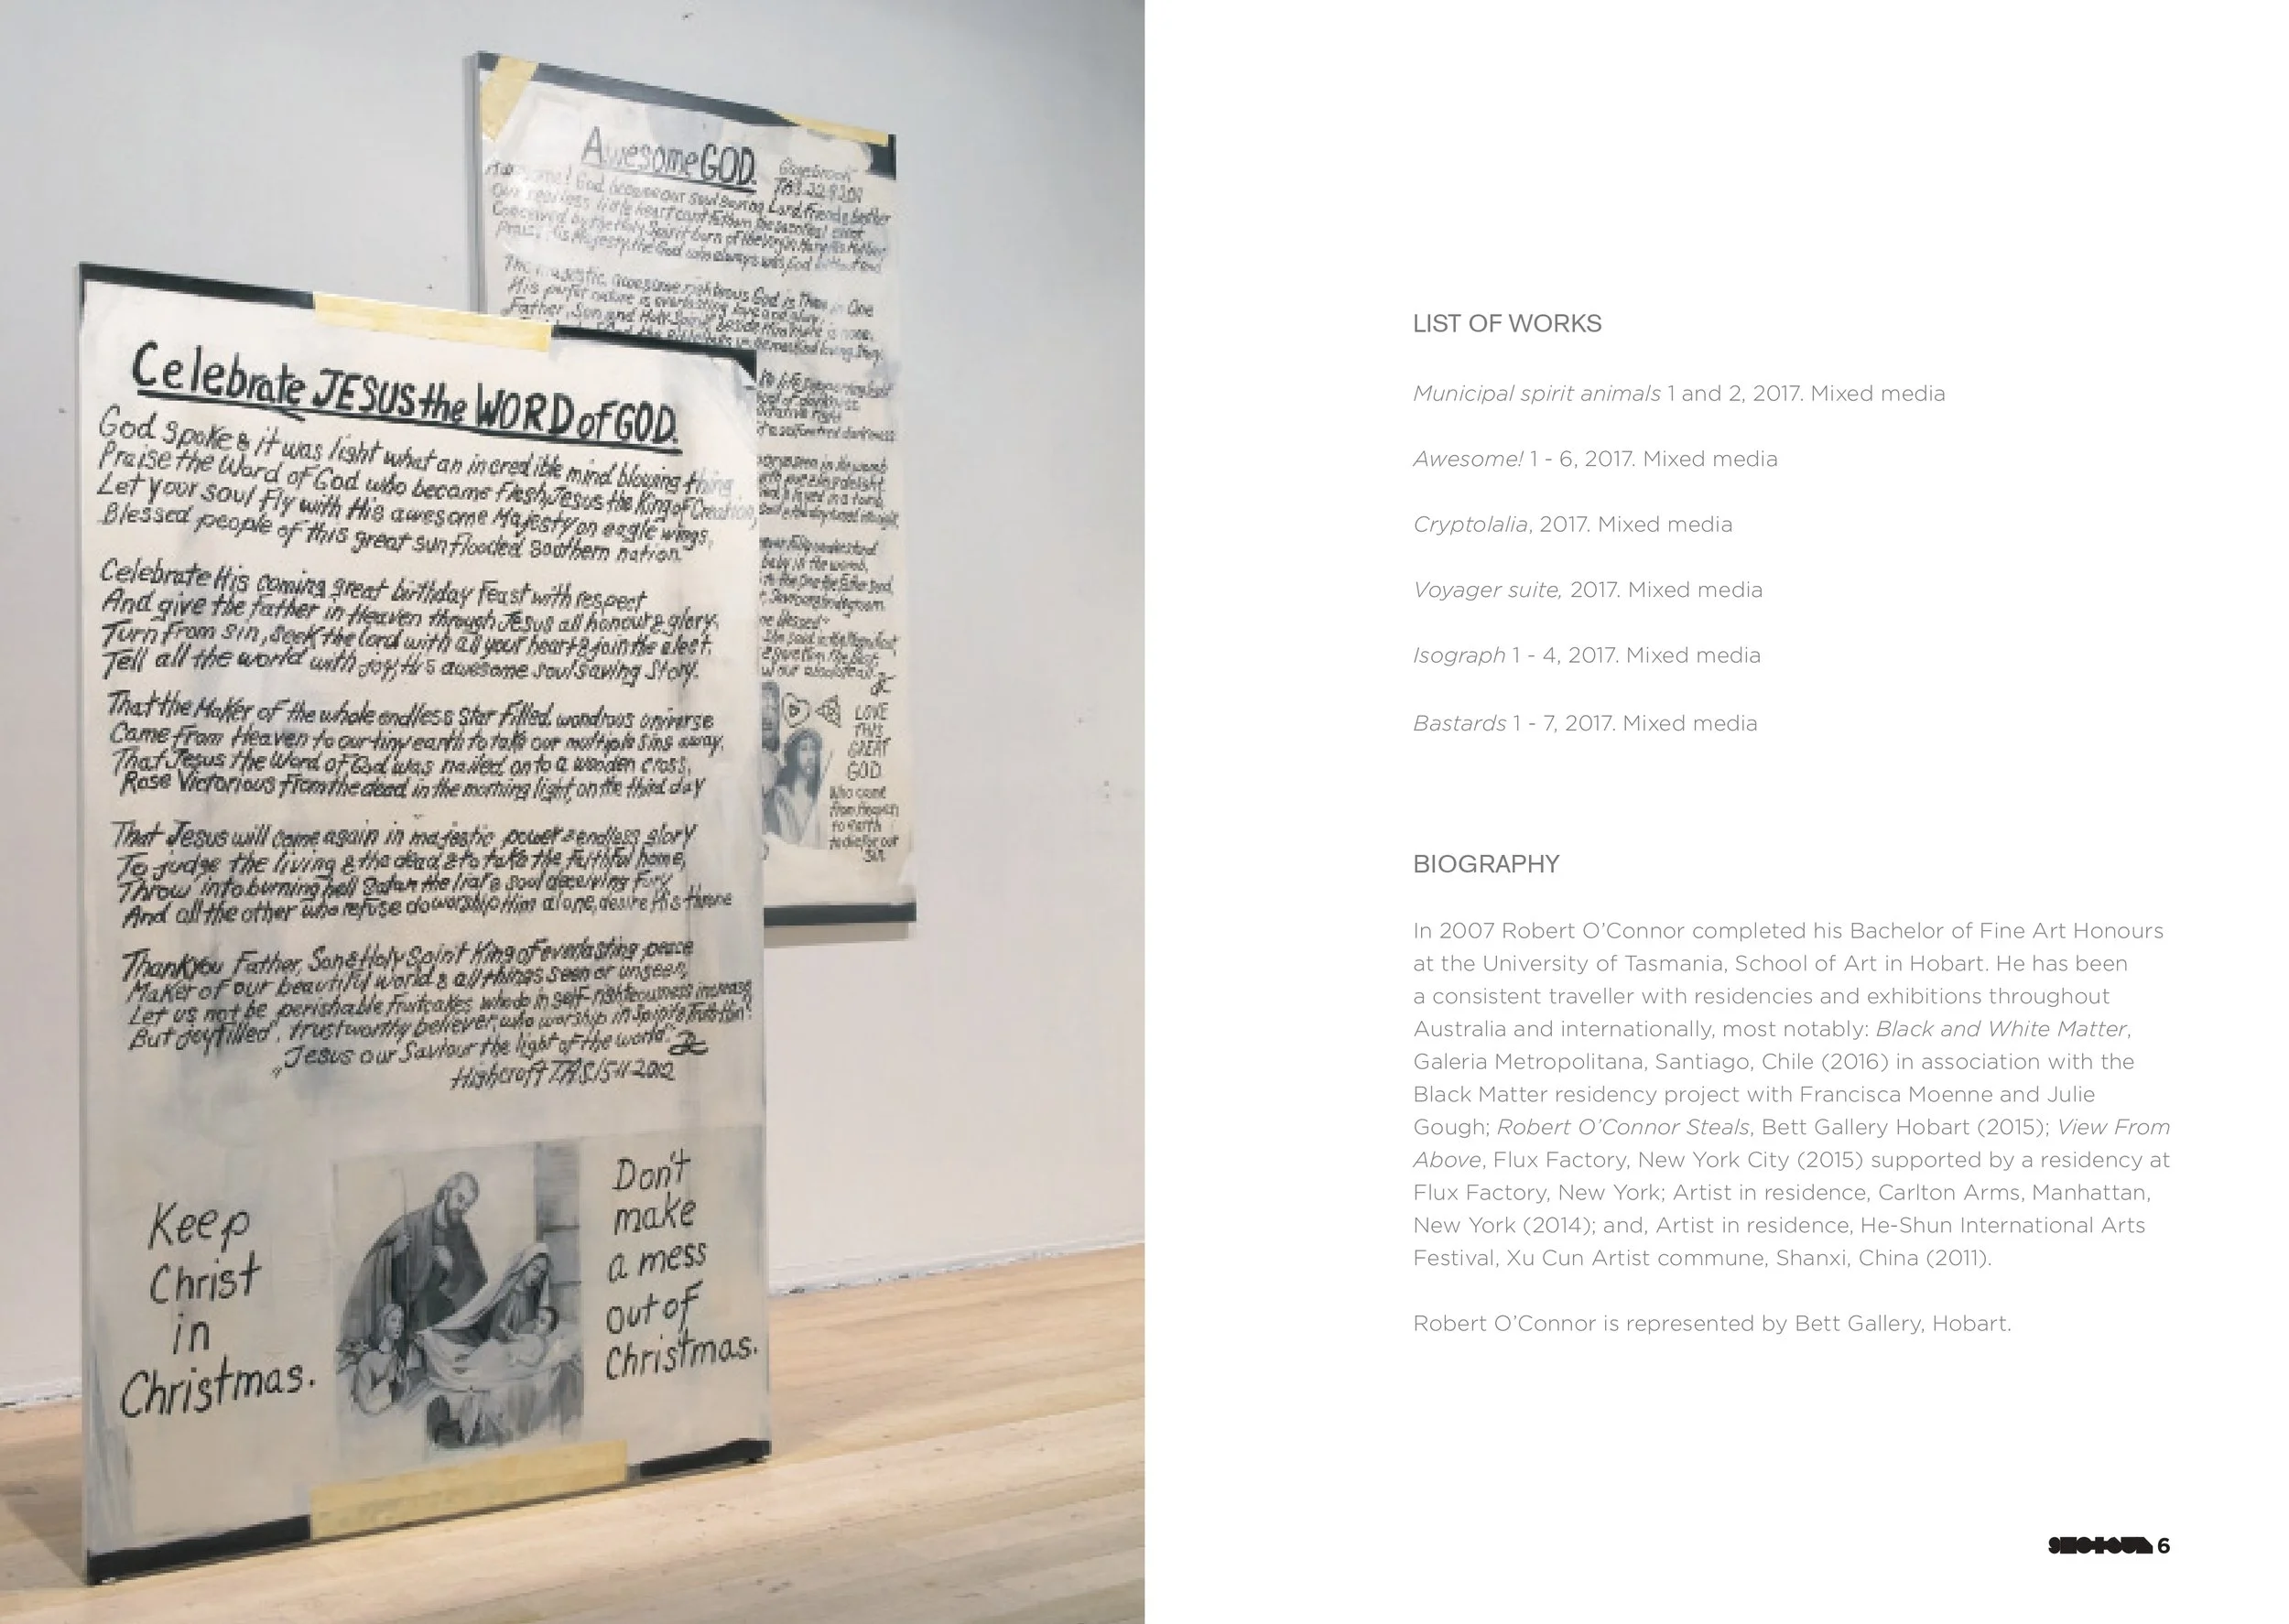 Celebrate JESUS the WORD of GOD.
God spoke & it was light what an incredible mind blowing thing
Praise the Word of God who became Flesh, Jesus the King of Creation,
Let your soul Fly with His awesome Majesty on eagle wings,
Blessed people of this great sun flooded Southern nation
Celebrate His coming great birthday Feast with respect
And give the Father in Heaven through Jesus all honour & glory,
Turn from sin, seek the lord with all your heart & join the elect,
Tell all the world with joy, His awesome soul saving Story.
That the Maker of the whole endless Star Filled wondrous universe
Came from Heaven to our tiny earth to take our multiple sins away,
That Jesus the Word of God was nailed onto a wooden cross,
Rose Victorious from the dead in the morning light, on the third day
That Jesus will come again in majestic power & endless glory
To judge the living & the dead & to take the faithful home,
Throw into burning hell Satan the liar & soul deceiving Fury
And all the other who refuse do worship Him alone, desire His throne
Thank you Father, Son & Holy Spirit King of everlasting peace
Maker of our beautiful world & all things seen or unseen,
Let us not be perishable fruitcakes who do in self-righteousness increase
But joyfilled, trustworthy believer, who worship in Spirit & Truth
„Jesus our Saviour the light of the world"
Highcroft TAS 15-11-2012
Keep
Christ
in
Christmas.
Don't
make
a mess
out of
Christmas.
Awesome GOD.
God became our soul saving Lord, friend & brother
Conceived by the Holy Spirit born of the Virgin Mary
His Majesty the God who always was God without end
The majestic, awesome righteous God is Three in One
His perfect nature is everlasting love and glory,
Father, Son and Holy Spirit beside Him there is none,
LOVE
THIS
GREAT
GOD
Who came
from Heaven
to earth
to die for our
sin
LIST OF WORKS
Municipal spirit animals 1 and 2, 2017. Mixed media
Awesome! 1 - 6, 2017. Mixed media
Cryptolalia, 2017. Mixed media
Voyager suite, 2017. Mixed media
Isograph 1 - 4, 2017. Mixed media
Bastards 1 - 7, 2017. Mixed media
BIOGRAPHY
In 2007 Robert O'Connor completed his Bachelor of Fine Art Honours
at the University of Tasmania, School of Art in Hobart. He has been
a consistent traveller with residencies and exhibitions throughout
Australia and internationally, most notably: Black and White Matter,
Galeria Metropolitana, Santiago, Chile (2016) in association with the
Black Matter residency project with Francisca Moenne and Julie
Gough; Robert O'Connor Steals, Bett Gallery Hobart (2015); View From
Above, Flux Factory, New York City (2015) supported by a residency at
Flux Factory, New York; Artist in residence, Carlton Arms, Manhattan,
New York (2014); and, Artist in residence, He-Shun International Arts
Festival, Xu Cun Artist commune, Shanxi, China (2011).
Robert O'Connor is represented by Bett Gallery, Hobart.
SHOTGUN 6